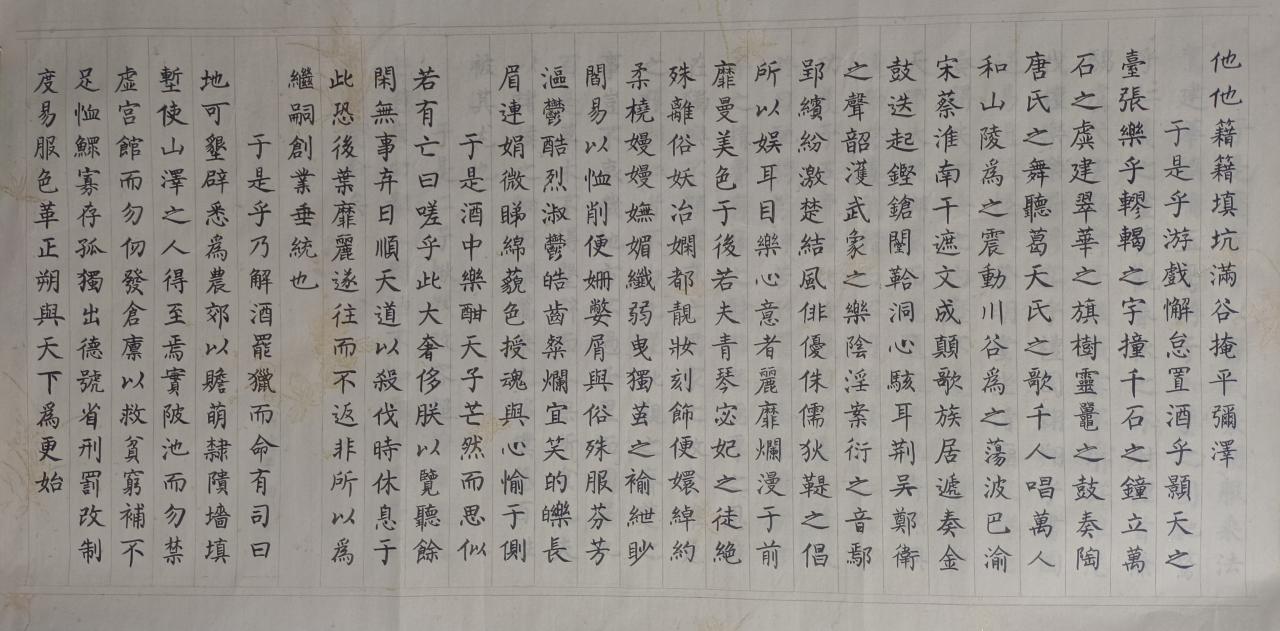 他他籍籍填坑滿谷掩平彌澤
于是乎游戲懈怠置酒乎顥天之
臺張樂乎轇輵之宇撞千石之鐘立萬
石之虡建翠華之旗樹靈鼉之鼓奏陶
唐氏之舞聽葛天氏之歌千人唱萬人
和山陵為之震動川谷為之蕩波巴渝
宋蔡淮南干遮文成顛歌族居遞奏金
鼓迭起鏗鎗闛鞈洞心駭耳荆吴鄭衛
之聲韶濩武象之樂陰淫案衍之音鄢
郢繽紛激楚結風俳優侏儒狄鞮之倡
所以娱耳目樂心意者麗靡爛漫于前
靡曼美色于後若夫青琴宓妃之徒絶
殊離俗妖冶嫻都靚妝刻飾便嬛綽約
柔橈嫚嫚嫵媚纖弱曳獨繭之褕紲眇
閻易以恤削便姍嫳屑與俗殊服芬芳
漚鬱酷烈淑鬱皓齒粲爛宜笑的皪長
眉連娟微睇綿藐色授魂與心愉于側
于是酒中樂酣天子芒然而思似
若有亡曰嗟乎此大奢侈朕以覽聽餘
閑無事弃日順天道以殺伐時休息于
此恐後葉靡麗遂往而不返非所以為
繼嗣創業垂統也
于是乎乃解酒罷獵而命有司曰
地可墾辟悉為農郊以贍萌隸隤墻填
塹使山澤之人得至焉實陂池而勿禁
虚宫館而勿仞發倉廪以救貧窮補不
足恤鰥寡存孤獨出德號省刑罰改制
度易服色革正朔與天下為更始